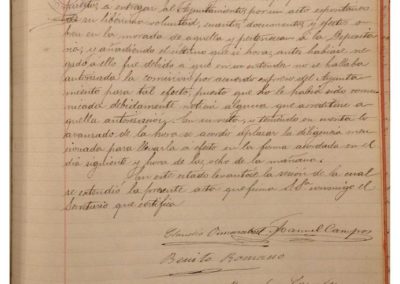 á entregar al Ayuntamiento, por un acto espontaneo
de su libérrima voluntad, cuantos documentos y efectos o-
bren en la morada de aquella y pertenezcan á la Depositaria
y añadiendo el último que si horas antes habíase ne-
gado a ello fué debido á que en su entender no se hallaba
autorizada la comision por acuerdo expreso del Ayunta-
miento para tal efecto, puesto que no le habia sido comu-
nicada debidamente noticia alguna que acreditase a-
quella autorizacion. En su vista, y teniendo en cuenta lo
avanzado de la hora se acordó aplazar la diligencia men-
cionada para llevarla á efecto en la forma acordada en el
dia siguiente y hora de las ocho de la mañana.
En este estado levantóse la sesion de la cual
se extendió la presente acta que firma S.S. conmigo el
Secretario que certifica
Claudio Manuel Campos
Benito Romano